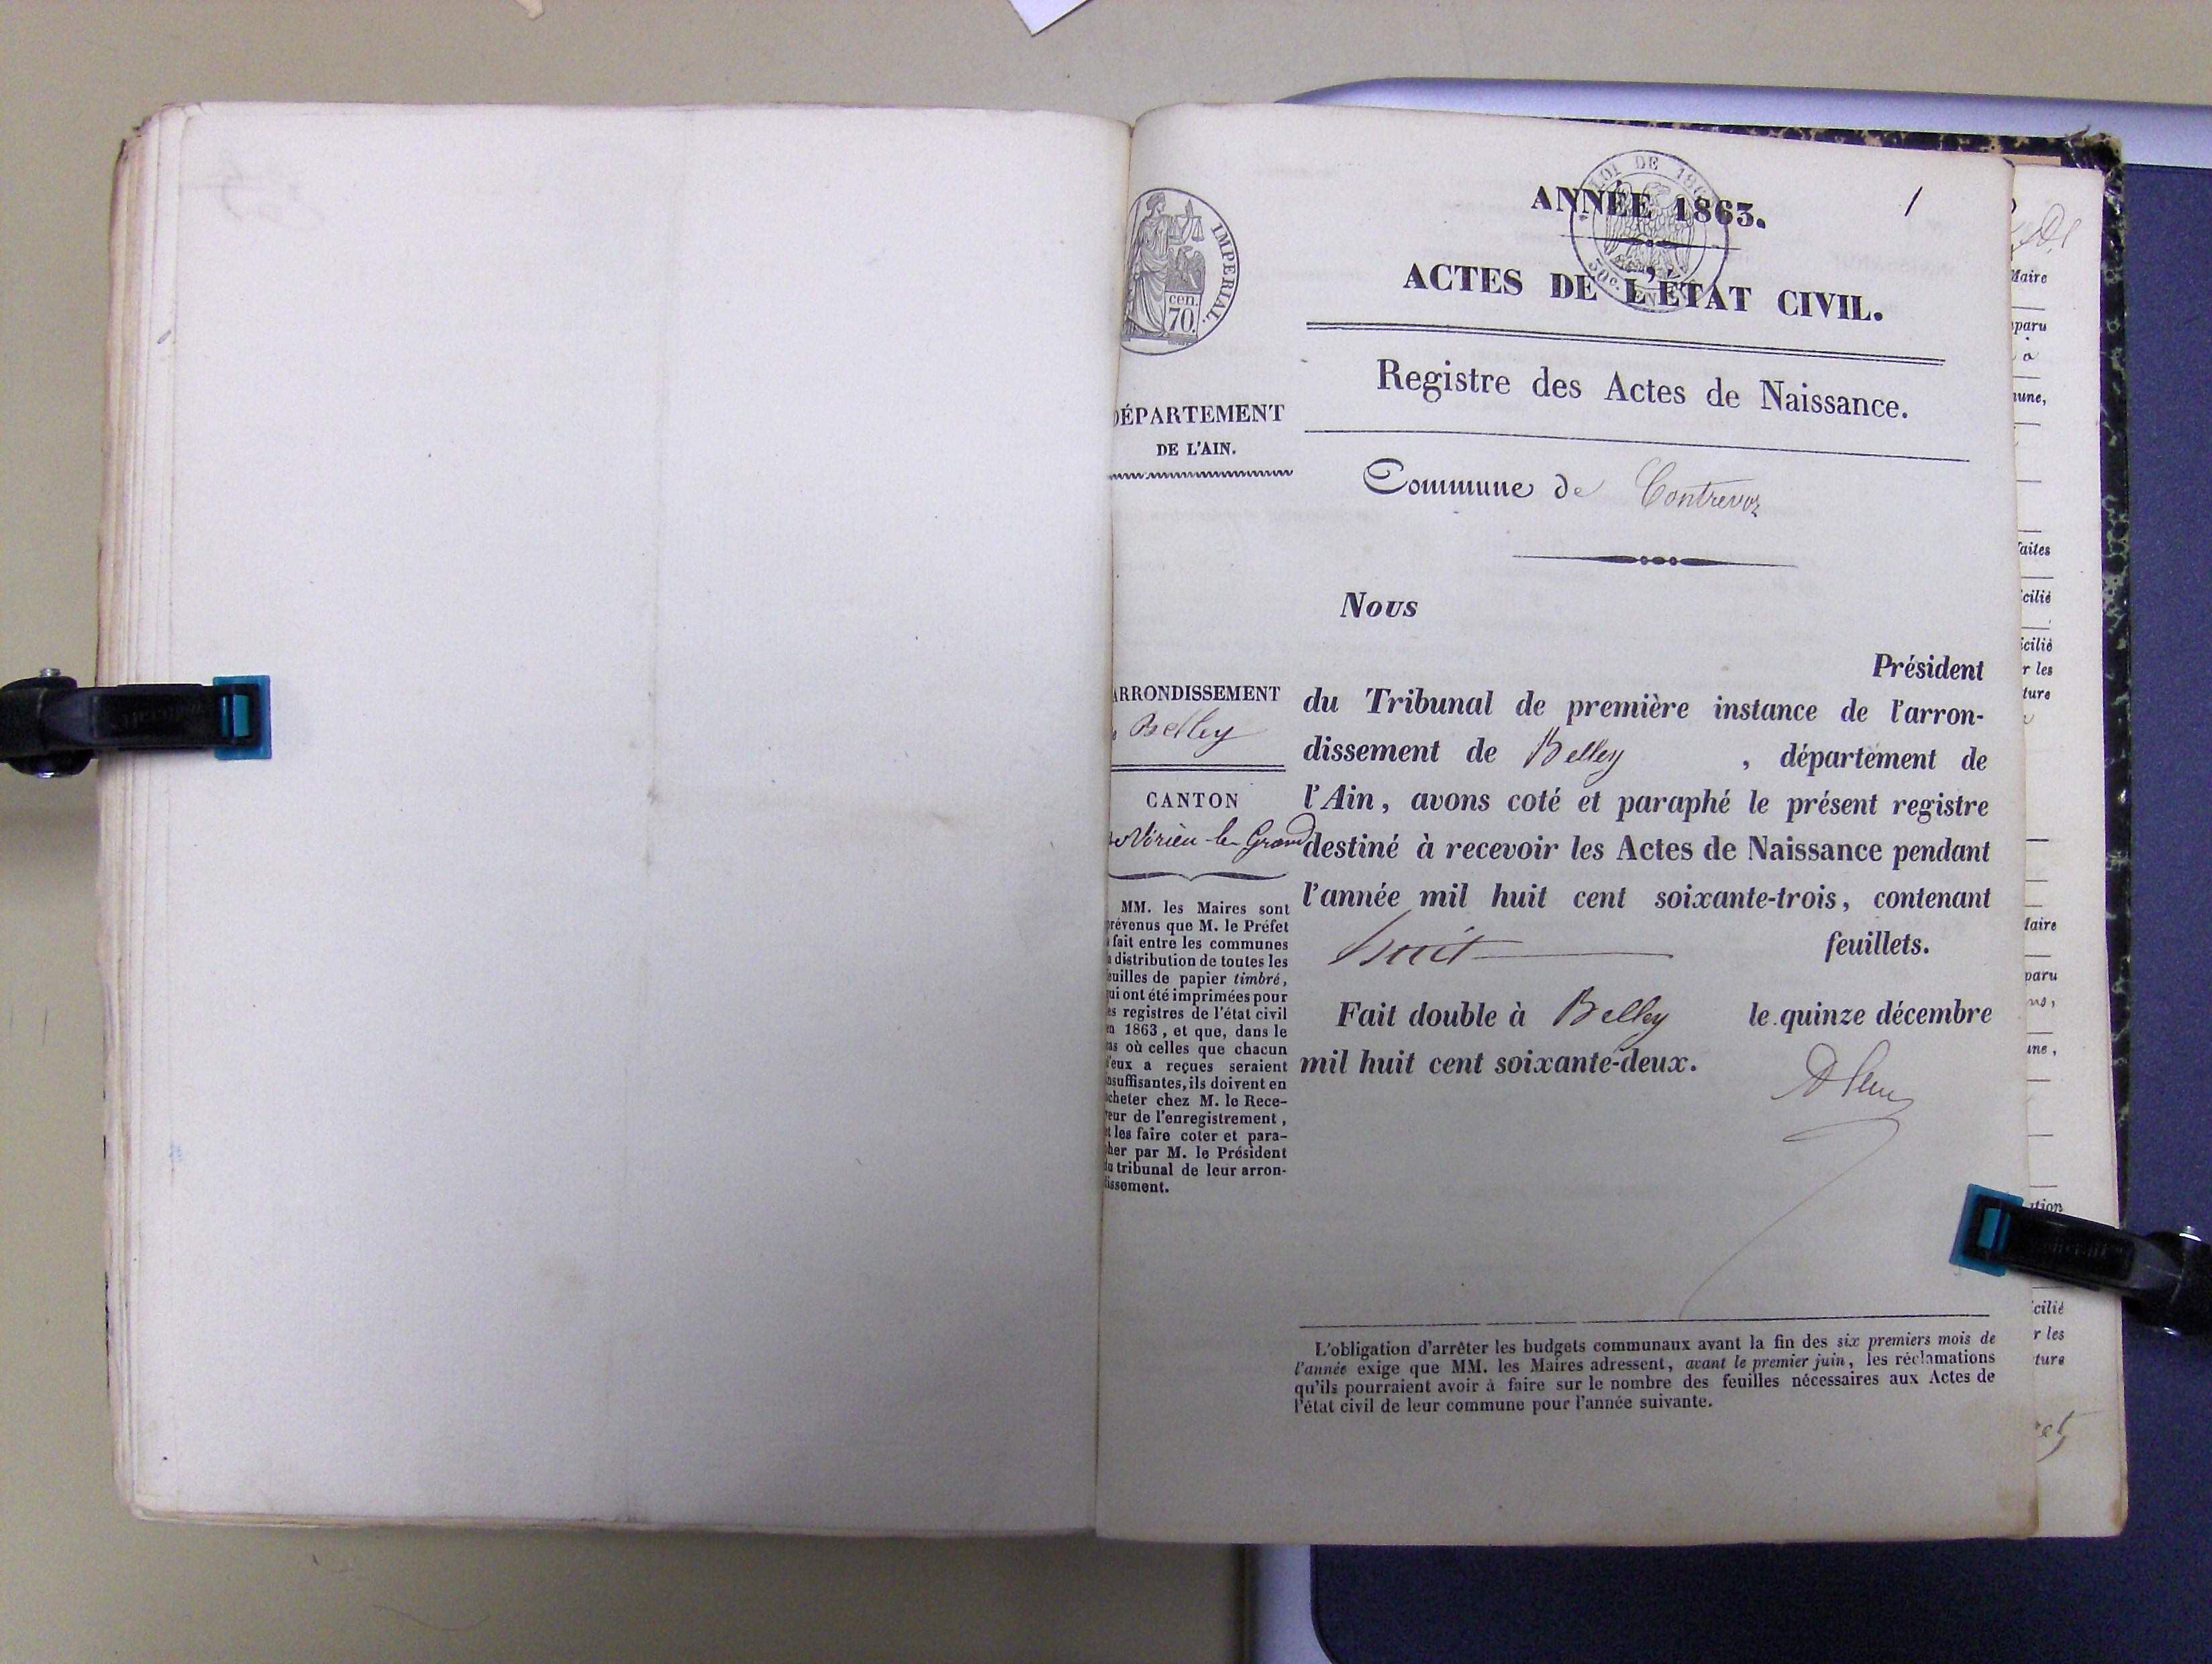 1
LOI DE 186
ANNÉE 1863.
IMPERIAL.
cen.
70.
50c. EN
ACTES DE L'ÉTAT CIVIL.
Registre des Actes de Naissance.
DÉPARTEMENT
DE L'AIN.
Commune de Contrevoz
Nous
Président
ARRONDISSEMENT
Belley
CANTON
de Virieu-le-Grand
MM. les Maires sont
prévenus que M. le Préfet
a fait entre les communes
la distribution de toutes les
feuilles de papier timbré,
qui ont été imprimées pour
les registres de l'état civil
en 1863, et que, dans le
cas où celles que chacun
d'eux a reçues seraient
insuffisantes, ils doivent en
acheter chez M. le Rece-
veur de l'enregistrement,
et les faire coter et para-
pher par M. le Président
du tribunal de leur arron-
dissement.
du Tribunal de première instance de l'arron-
dissement de Belley , département de
l'Ain, avons coté et paraphé le présent registre
destiné à recevoir les Actes de Naissance pendant
l'année mil huit cent soixante-trois, contenant
huit feuillets.
Fait double à Belley le quinze décembre
mil huit cent soixante-deux.
L'obligation d'arrêter les budgets communaux avant la fin des six premiers mois de
l'année exige que MM. les Maires adressent, avant le premier juin, les réclamations
qu'ils pourraient avoir à faire sur le nombre des feuilles nécessaires aux Actes de
l'état civil de leur commune pour l'année suivante.
Maire
paru
à
mune,
faites
cilié
icilié
r les
ture
Maire
paru
ns,
une,
ation
cilié
r les
ture